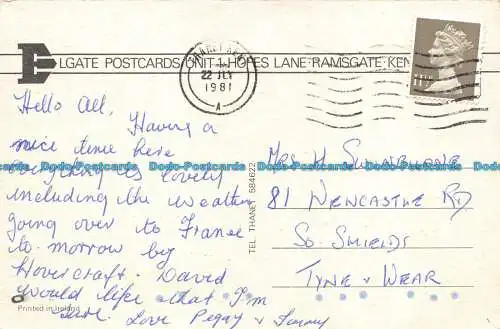 ELGATE POSTCARDS UNIT 1 HOPES LANE RAMSGATE KEN
THANET KENT
22 JLY
1981
A
11½P
Hello All,
Having a
nice time here
everything is lovely
including the weather
going over to France
to-morrow by
Hovercraft. David
would life that I'm
sure. Love Pegay & Tommy
Mrs H
81 Newcastle RD
So. Shields
Tyne & Wear
TEL THANET 584622
Printed in Ireland
Dodo-Postcards Dodo-Postcards Dodo-Postcards Dodo-Postcards Dodo-Postcards Dodo-Postcards